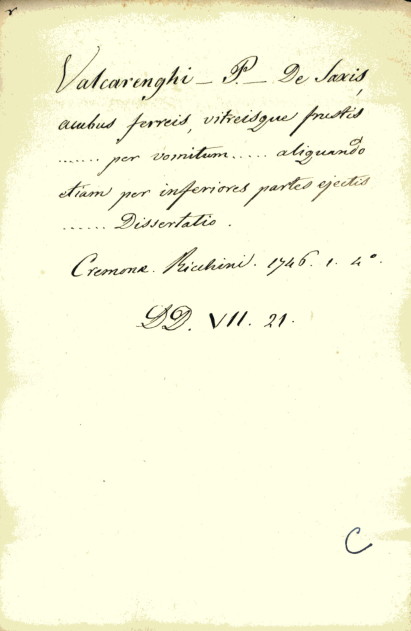 Valcarenghi - P. - De Saxis,
acubus ferreis, vitreisque frustis
....... per vomitum ..... aliquando
etiam per inferiores partes ejectis
...... Dissertatio.
Cremonæ. Ricchini. 1746. 1. 4°.
DD. VII. 21.
C